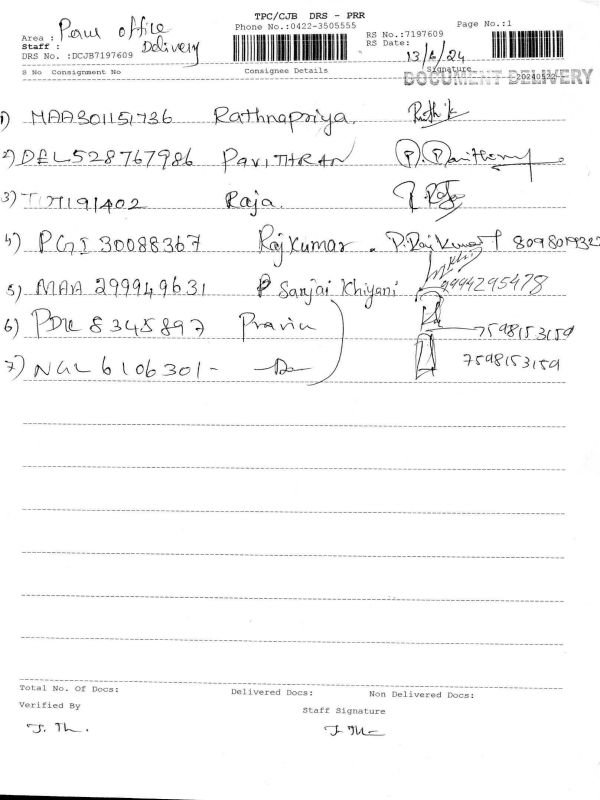 TPC/CJB DRS - PRR
Phone No.:0422-3505555
Page No.:1
Area : Peru office
Delivery
Staff :
DRS No. :DCJB7197609
RS No.:7197609
RS Date:
13/6/24
S No Consignment No Consignee Details Signature
DOCUMENT DELIVERY
20240522
1) MAA301151736 Rathnapriya
2) DEL528767986 PAVITHRAN
3) 191402 Raja.
4) PGI 30088367 Raj Kumar. P. Raj Kumar
5) MAA 299949631 P Sanjai Khiyani 9994295478
6) PDK 8345897 Pravin 7598153159
7) NGL 6106301- 7598153159
Total No. Of Docs: Delivered Docs: Non Delivered Docs:
Verified By Staff Signature